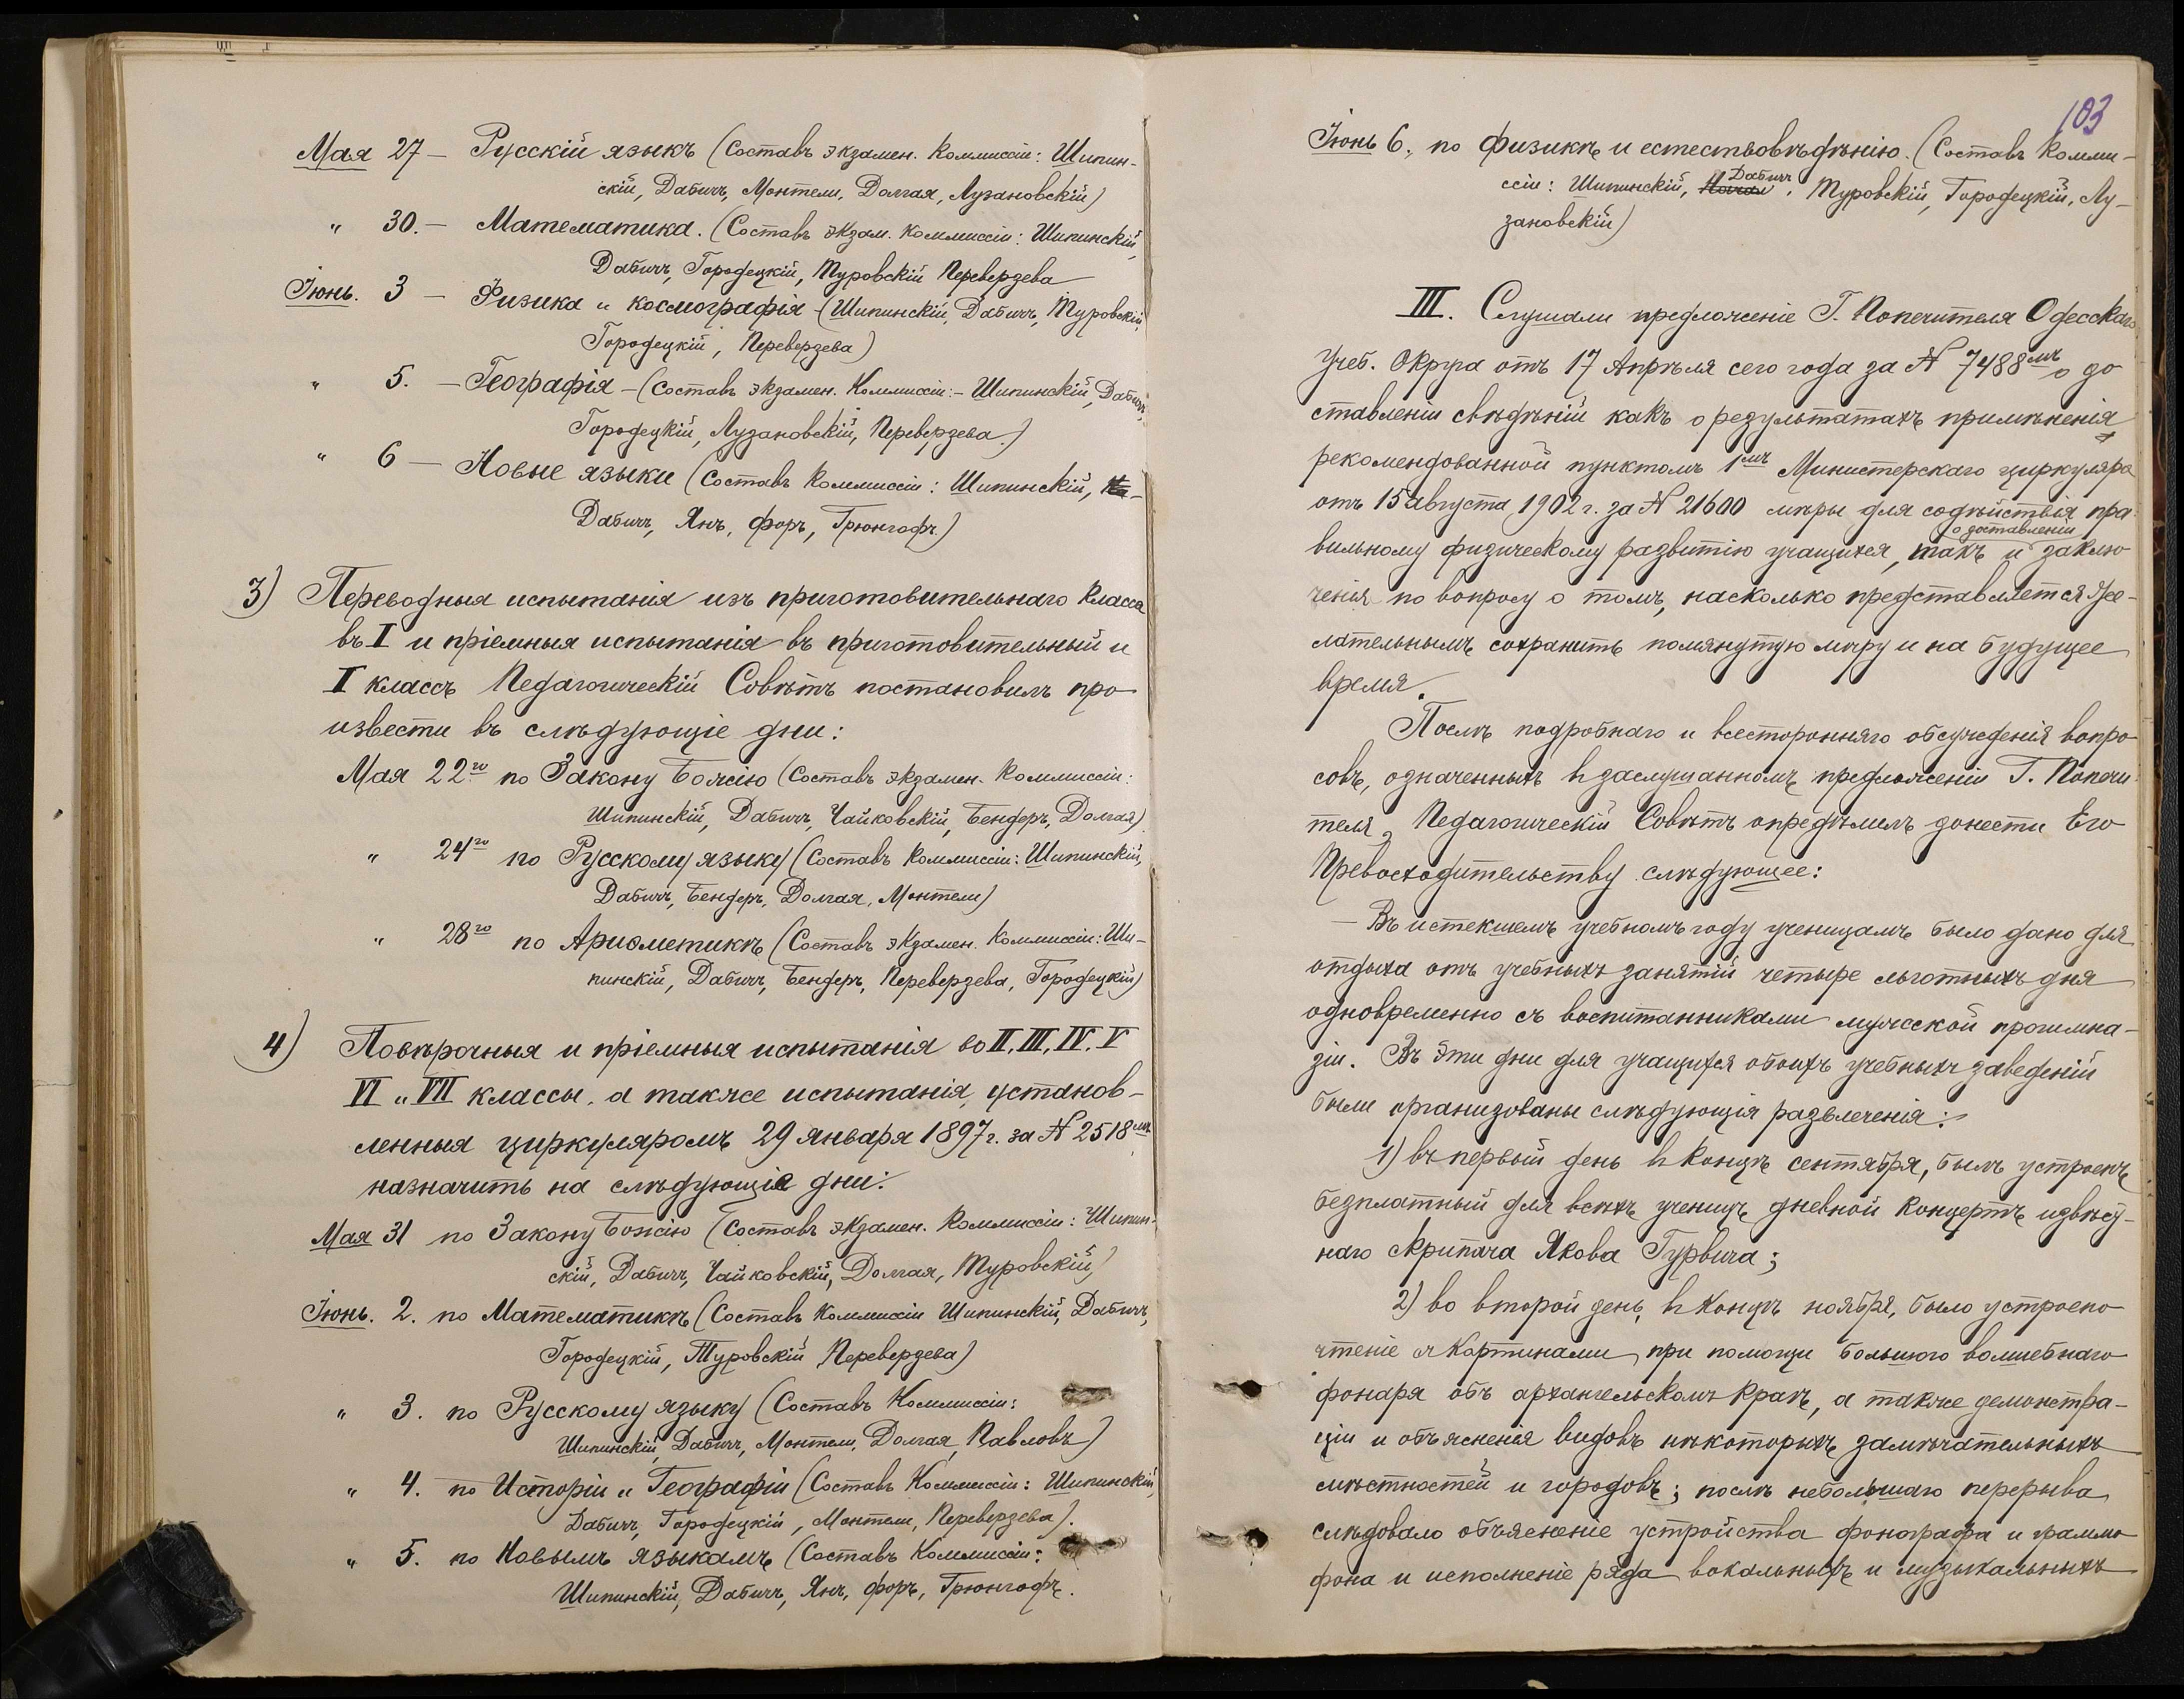 Мая 27 — Русскій языкъ (Составъ экзамен. Коммиссіи: Шипин-
скій, Дабичъ, Монтели, Долгая, Лузановскій)
" 30. — Математика. (Составъ экзам. Коммиссіи: Шипинскій,
Дабичъ, Городецкій, Туровскій Переверзева
Іюнь. 3 — Физика и космографія — (Шипинскій, Дабичъ, Туровскій,
Городецкій, Переверзева)
" 5. — Географія — (Составъ экзамен. Коммиссіи: — Шипинскій, Дабичъ,
Городецкій, Лузановскій, Переверзева.)
" 6 — Новые языки (Составъ Коммиссіи: Шипинскій,
Дабичъ, Янъ, Форъ, Грюнгофъ.)
3) Переводныя испытанія изъ приготовительнаго класса
въ I и пріемныя испытанія въ приготовительный и
I классъ Педагогическій Совѣтъ постановилъ про
извести въ слѣдующіе дни:
Мая 22го по Закону Божію (Составъ экзамен. Коммиссіи:
Шипинскій, Дабичъ, Чайковскій, Бендеръ, Долгая)
" 24го по Русскому языку (Составъ Коммиссіи: Шипинскій,
Дабичъ, Бендеръ, Долгая, Монтели)
" 28го по Ариѳметикѣ (Составъ экзамен. Коммиссіи: Ши-
пинскій, Дабичъ, Бендеръ, Переверзева, Городецкій)
4) Повѣрочныя и пріемныя испытанія во II, III, IV, V
VI и VII классы, а также испытанія, установ-
ленныя циркуляромъ 29 января 1897 г. за № 2518мъ
назначить на слѣдующіе дни:
Мая 31 по Закону Божію (Составъ экзамен. Коммиссіи: Шипин-
скій, Дабичъ, Чайковскій, Долгая, Туровскій)
Іюнь. 2. по Математикѣ (Составъ Коммиссіи Шипинскій, Дабичъ,
Городецкій, Туровскій Переверзева)
" 3. по Русскому языку (Составъ Коммиссіи:
Шипинскій, Дабичъ, Монтели, Долгая, Павловъ)
" 4. по Исторіи и Географіи (Составъ Коммиссіи: Шипинскій,
Дабичъ, Городецкій, Монтели, Переверзева).
" 5. по Новымъ языкамъ (Составъ Коммиссіи:
Шипинскій, Дабичъ, Янъ, Форъ, Грюнгофъ.
103
Іюнь 6. по Физикѣ и естествовѣдѣнію. (Составъ Комми-
ссіи: Шипинскій, Дабичъ, Туровскій, Городецкій, Лу-
зановскій)
III. Слушали предложеніе Г. Попечителя Одесскаго
Учеб. Округа отъ 17 Апрѣля сего года за № 7488мъ о до
ставленіи свѣдѣній какъ о результатахъ примѣненія
рекомендованной пунктомъ 1мъ Министерскаго циркуляра
отъ 15 августа 1902 г. за № 21600 мѣры для содѣйствія пра-
вильному физическому развитію учащихся, такъ и о доставленіи заклю
ченія по вопросу о томъ, насколько представляется же-
лательнымъ сохранить помянутую мѣру и на будущее
время.
Послѣ подробнаго и всесторонняго обсужденія вопро
совъ, означенныхъ въ заслушанномъ предложеніи Г. Попечи
теля, Педагогическій Совѣтъ опредѣлилъ донести Его
Превосходительству слѣдующее:
— Въ истекшемъ учебномъ году ученицамъ было дано для
отдыха отъ учебныхъ занятій четыре льготныхъ дня
одновременно съ воспитанниками мужской прогимна-
зіи. Въ эти дни для учащихся обоихъ учебныхъ заведеній
были организованы слѣдующія развлеченія:
1) въ первый день въ концѣ сентября, былъ устроенъ
безплатный для всѣхъ ученицъ дневной концертъ извѣст-
наго скрипача Якова Гурвича;
2) во второй день, въ концѣ ноября, было устроено
чтеніе съ картинами при помощи большого волшебнаго
фонаря объ архангельскомъ краѣ, а также демонстра-
ціи и объясненія видовъ нѣкоторыхъ замѣчательныхъ
мѣстностей и городовъ; послѣ небольшаго перерыва
слѣдовало объясненіе устройства фонографа и граммо
фона и исполненіе ряда вокальныхъ и музыкальныхъ